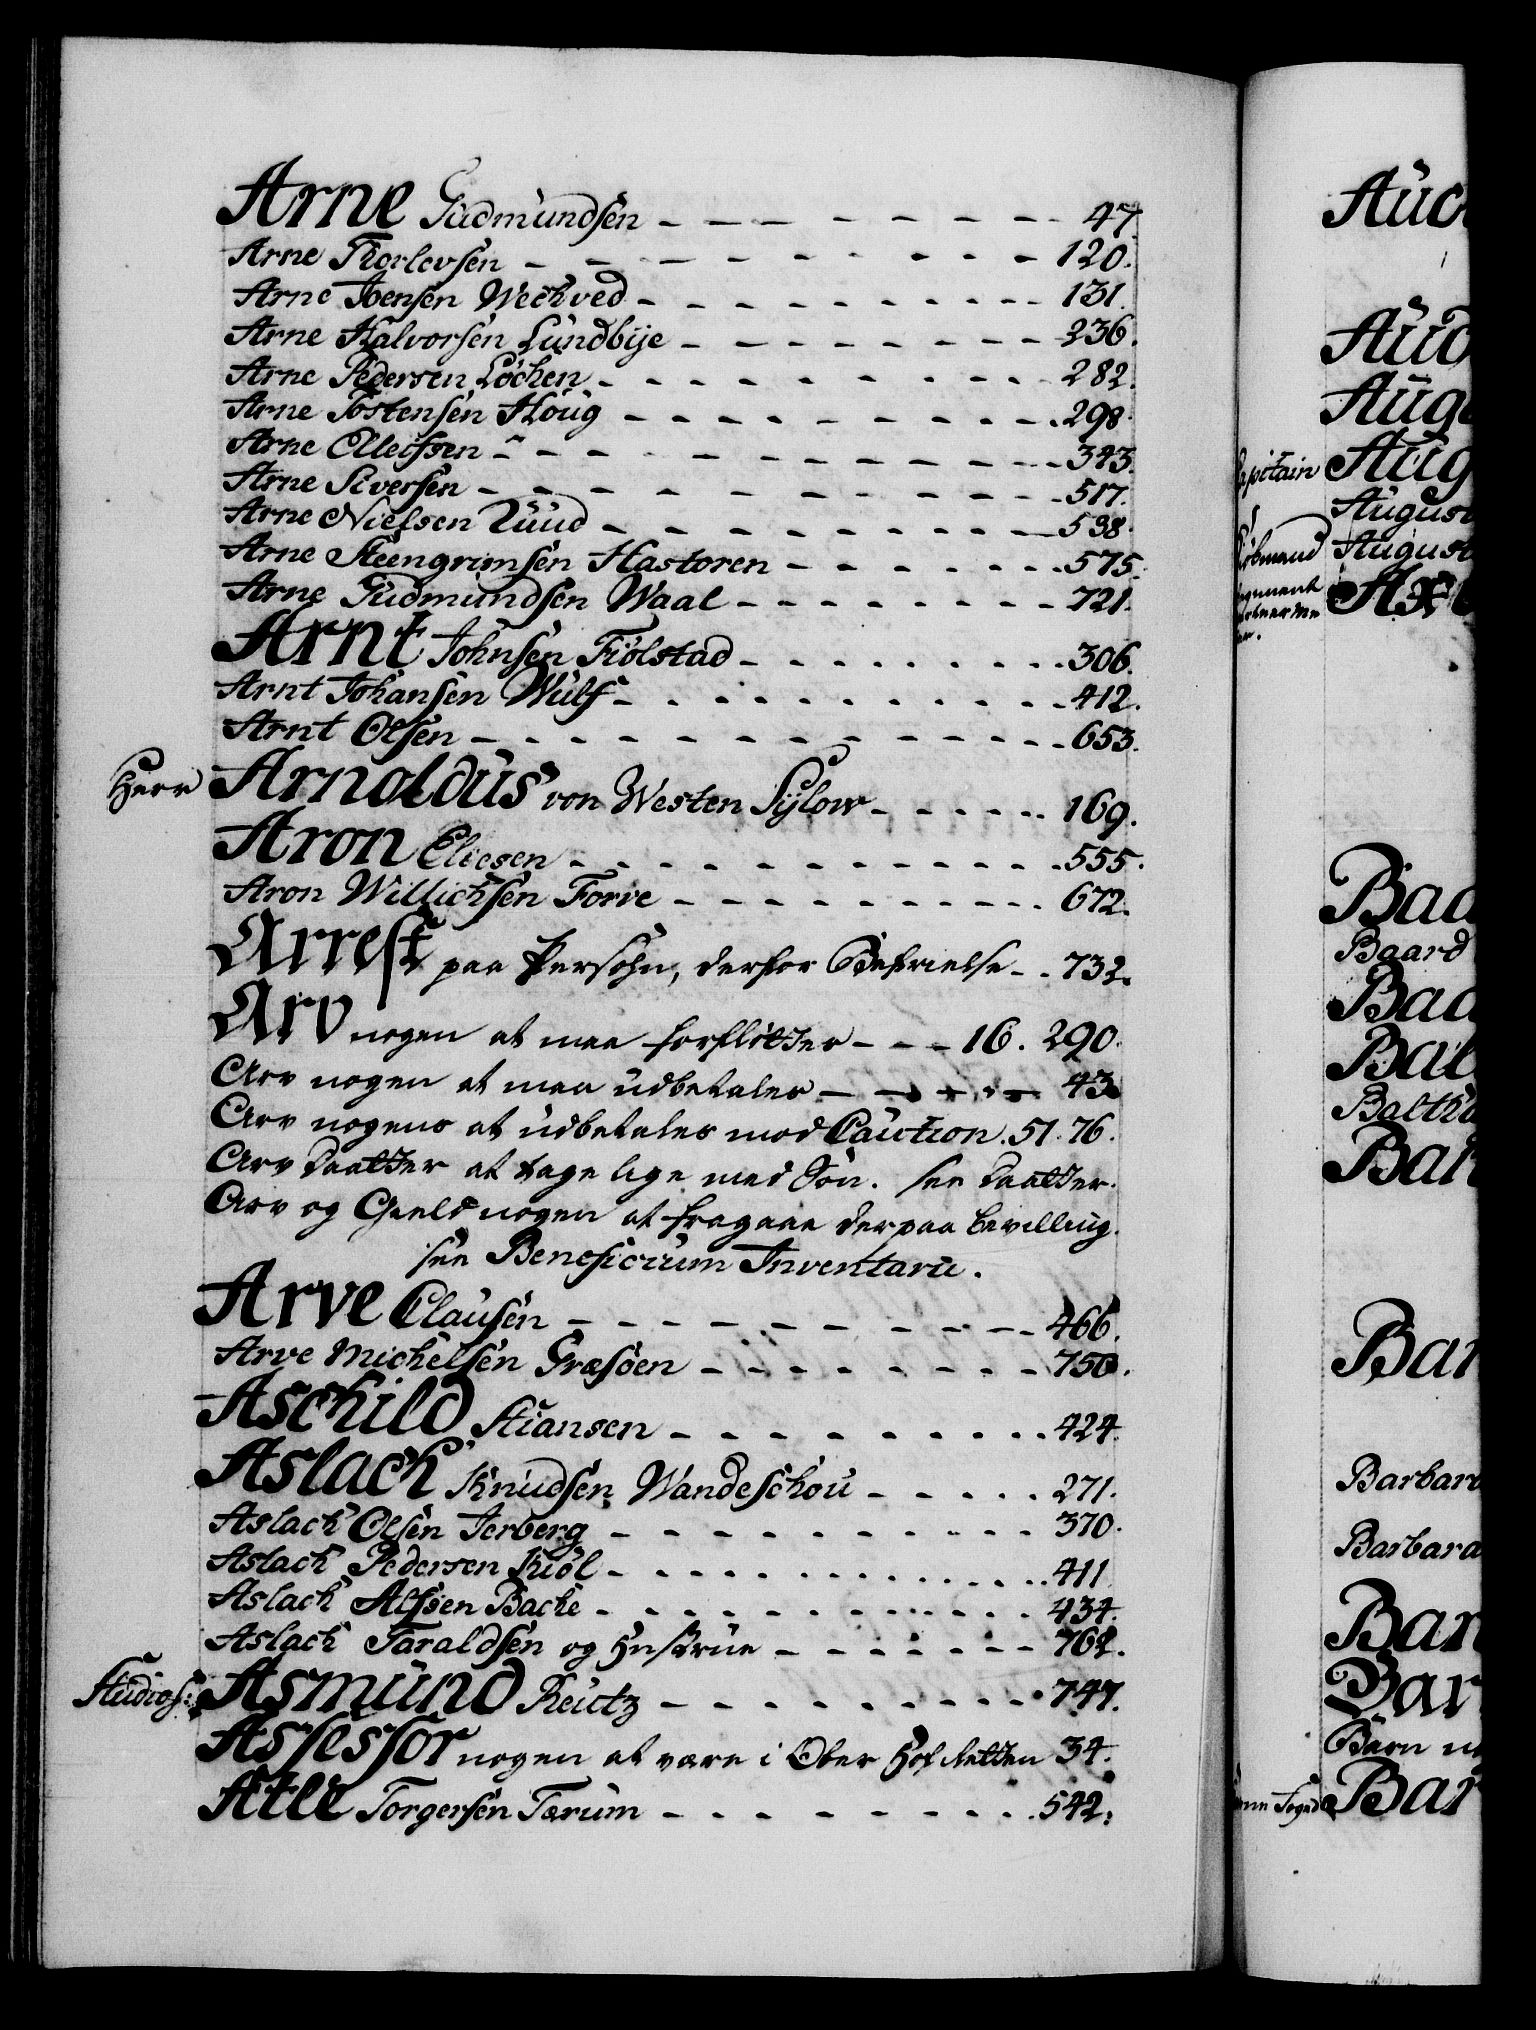 Arne Gudmundsen - - - - - - - - 47.
Arne Thorlevsen - - - - - - - - - 120.
Arne Joensen Weckved - - - - - - - - - 131.
Arne Halvorsen Lundbÿe - - - - - - - - 236.
Arne Pedersen Löcken - - - - - - - - - 282.
Arne Tostensen Houg - - - - - - - - - 298.
Arne Olleifsen - - - - - - - - - - - 343.
Arne Siversen - - - - - - - - - - - 517.
Arne Nielsen Ruud - - - - - - - - - 538.
Arne Steengrimsen Hastoren - - - - - - - 575.
Arne Gudmundsen Waal - - - - - - - - 721.
Arnt Johnsen Fiölstad - - - - - - - - 306.
Arnt Johansen Wulf - - - - - - - - - - 412.
Arnt Olsen - - - - - - - - - - - - 653.
Herr Arnoldus von Westen Sÿlow - - - - - - 169.
Aron Eliesen - - - - - - - - - - - 555.
Aron Willichsen Forve - - - - - - - - - 672.
Arrest paa Persohn, derfor Befrielse - - 732.
Arv nogen at maa forflötter - - - 16. 290.
Arv nogen at maa udbetales - - - - - 43.
Arv nogens at udbetales mod Caution. 51. 76.
Arv Daatter at tage lige med Sön. see Daatter.
Arv og Gield nogen at fragaae derpaa bevilling.
see Beneficium Inventarii.
Arve Clausen - - - - - - - - - - 466.
Arve Michelsen Græsöen - - - - - - - - 750.
Aschild Stiansen - - - - - - - - - - 424.
Aslach Knudsen Wandeschou - - - - - 271.
Aslach Olsen Jerberg - - - - - - - - - 370.
Aslach Pedersen Kiöl - - - - - - - - - - 411.
Aslach Alfsen Backe - - - - - - - - - - 434.
Aslach Taraldsen og Hustrue - - - - - - - 762.
Studios: Asmund Reutz - - - - - - - - - 747.
Assessor nogen at være i Ober Hof Retten 34.
Atle Torgersen Tærum - - - - - - - - - 542.
Capitain
August
August
Baard
Barbara
Barbara
Barn